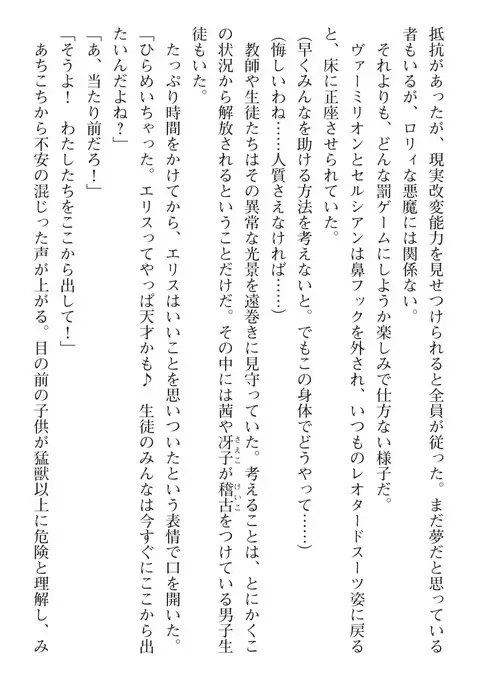 抵抗があったが、現実改変能力を見せつけられると全員が従った。まだ夢だと思っている
者もいるが、ロリィな悪魔には関係ない。
それよりも、どんな罰ゲームにしようか楽しみで仕方ない様子だ。
ヴァーミリオンとセルシアンは鼻フックを外され、いつものレオタードスーツ姿に戻る
と、床に正座させられていた。
(早くみんなを助ける方法を考えないと。でもこの身体でどうやって……)
(悔しいわね……人質さえなければ……)
教師や生徒たちはその異常な光景を遠巻きに見守っていた。考えることは、とにかくこ
の状況から解放されるということだけだ。その中には茜や冴子が稽古をつけている男子生
徒もいた。
たっぷり時間をかけてから、エリスはいいことを思いついたという表情で口を開いた。
「ひらめいちゃった。エリスってやっぱ天才かも♪ 生徒のみんなは今すぐにここから出
たいんだよね?」
「あ、当たり前だろ!」
「そうよ! わたしたちをここから出して!」
あちこちから不安の混じった声が上がる。目の前の子供が猛獣以上に危険と理解し、み